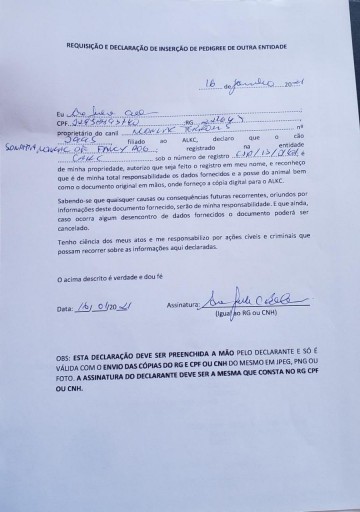 REQUISIÇÃO E DECLARAÇÃO DE INSERÇÃO DE PEDIGREE DE OUTRA ENTIDADE
16 de
Eu
CPF RG
proprietário do canil nº
filiado ao ALKC, declaro que o cão
OF registrado na entidade
sob o número de registro
de minha propriedade, autorizo que seja feito o registro em meu nome, e reconheço
que é de minha total responsabilidade os dados fornecidos e a posse do animal bem
como o documento original em mãos, onde forneço a cópia digital para o ALKC.
Sabendo-se que quaisquer causas ou consequências futuras recorrentes, oriundos por
informações deste documento fornecido, serão de minha responsabilidade. E que ainda,
caso ocorra algum desencontro de dados fornecidos o documento poderá ser
cancelado.
Tenho ciência dos meus atos e me responsabilizo por ações cíveis e criminais que
possam recorrer sobre as informações aqui declaradas.
O acima descrito é verdade e dou fé
Data: Assinatura:
(Igual ao RG ou CNH)
OBS: ESTA DECLARAÇÃO DEVE SER PREENCHIDA A MÃO PELO DECLARANTE E SÓ É
VÁLIDA COM O ENVIO DAS CÓPIAS DO RG E CPF OU CNH DO MESMO EM JPEG, PNG OU
FOTO. A ASSINATURA DO DECLARANTE DEVE SER A MESMA QUE CONSTA NO RG CPF
OU CNH.